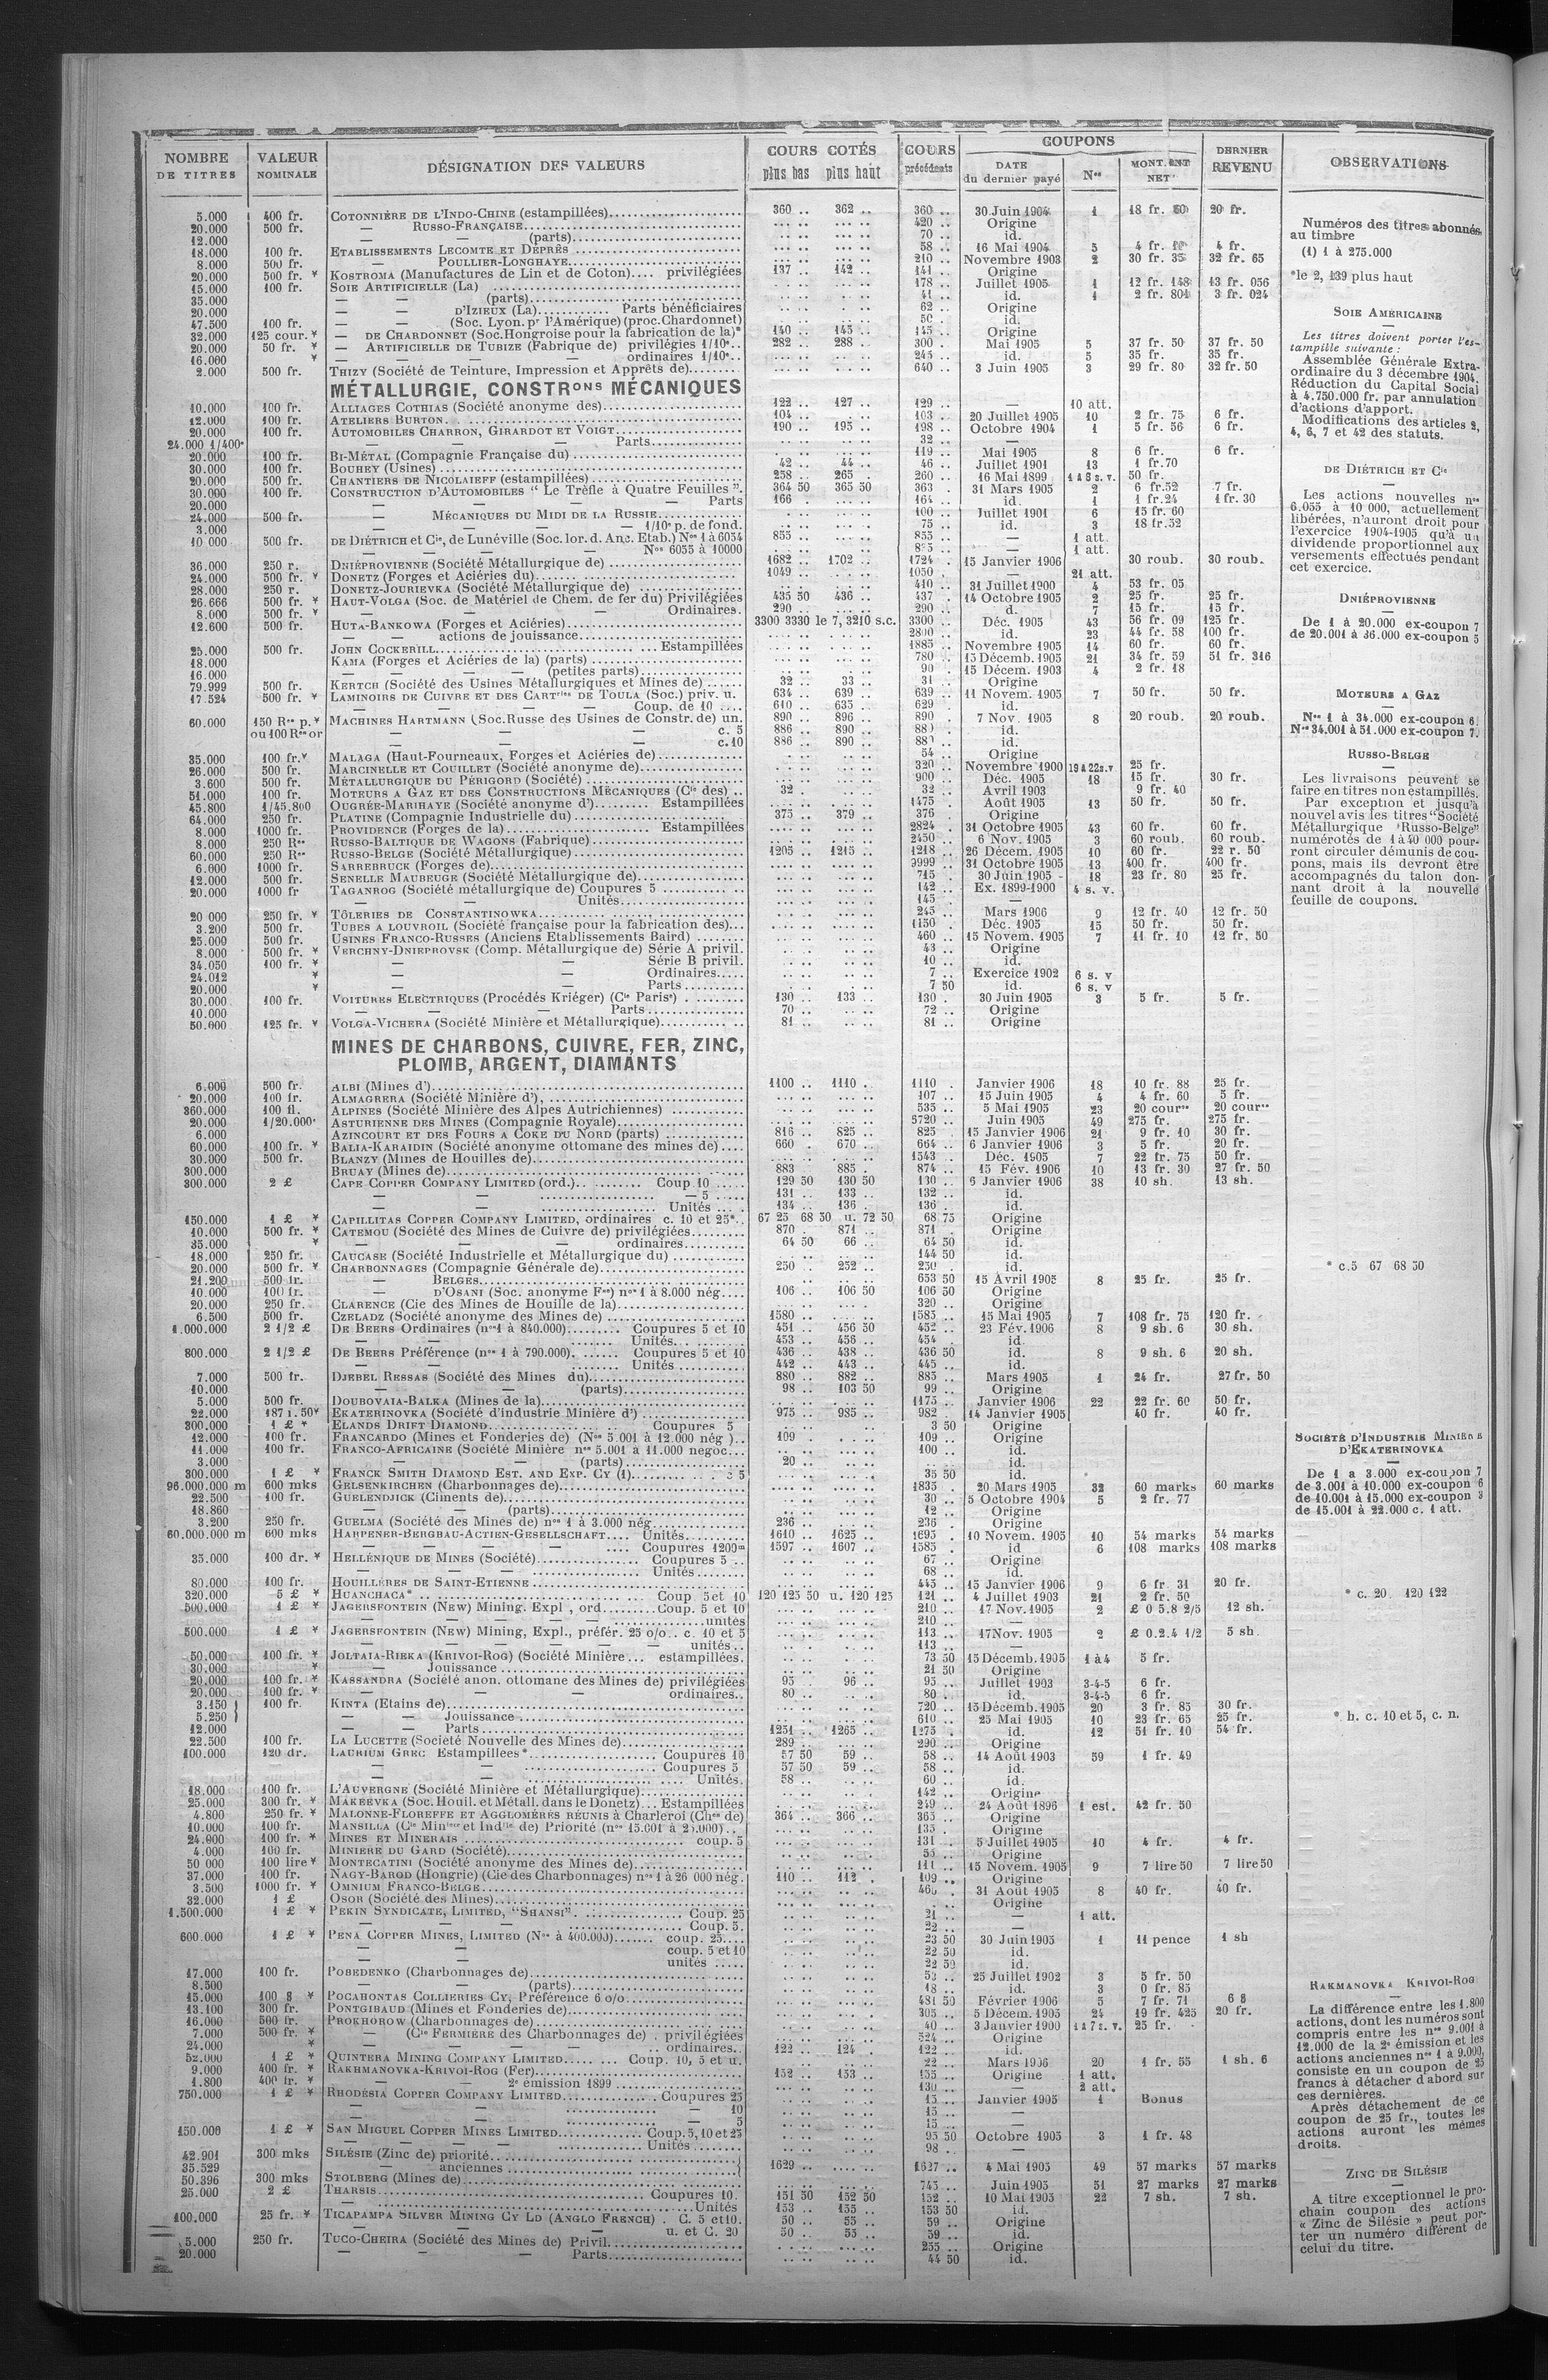 NOMBRE DE TITRES | VALEUR NOMINALE | DÉSIGNATION DES VALEURS | COURS COTÉS plus bas plus haut | COURS précédents | COUPONS DATE du dernier payé | Nos | MONTANT NET | DERNIER REVENU | OBSERVATIONS
5.000 400 fr. COTONNIÈRE DE L'INDO-CHINE (estampillées) 360 .. 362 .. 360 .. 30 Juin 1904 1 18 fr. 60 20 fr.
20.000 500 fr. — RUSSO-FRANÇAISE 420 .. Origine
12.000 — — (parts) 70 .. id.
18.000 100 fr. ETABLISSEMENTS LECOMTE ET DEPRÈS 58 .. 16 Mai 1904 5 4 fr. 4 fr.
8.000 500 fr. — POULLIER-LONGHAYE 210 .. Novembre 1903 2 30 fr. 35 32 fr. 65
20.000 500 fr. ¥ KOSTROMA (Manufactures de Lin et de Coton).... privilégiées 137 .. 142 .. 141 .. Origine
15.000 100 fr. SOIE ARTIFICIELLE (La) 178 .. Juillet 1905 1 12 fr. 148 13 fr. 056
35.000 — — (parts) 41 .. id. 1 2 fr. 804 3 fr. 024
20.000 — D'IZIEUX (La) Parts bénéficiaires 62 .. Origine
47.500 100 fr. — (Soc. Lyon. pr l'Amérique) (proc. Chardonnet) 50 .. id.
32.000 125 cour. ¥ — DE CHARDONNET (Soc. Hongroise pour la fabrication de la)* 140 .. 145 .. 145 .. Origine
20.000 50 fr. ¥ — ARTIFICIELLE DE TUBIZE (Fabrique de) privilégies 1/10e.. 282 .. 288 .. 300 . Mai 1905 5 37 fr. 50 37 fr. 50
16.000 ¥ — — — — ordinaires 1/10e.. 245 .. id. 5 35 fr. 35 fr.
2.000 500 fr. THIZY (Société de Teinture, Impression et Apprêts de) 640 .. 3 Juin 1905 3 29 fr. 80 32 fr. 50
MÉTALLURGIE, CONSTRons MÉCANIQUES
10.000 100 fr. ALLIAGES COTHIAS (Société anonyme des) 122 .. 127 .. 129 .. — 10 att.
12.000 100 fr. ATELIERS BURTON 104 .. 103 .. 20 Juillet 1905 10 2 fr. 75 6 fr.
20.000 100 fr. AUTOMOBILES CHARRON, GIRARDOT ET VOIGT 190 .. 195 .. 198 .. Octobre 1904 1 5 fr. 56 6 fr.
24.000 1/400e — — — Parts 32 .. —
20.000 100 fr. BI-MÉTAL (Compagnie Française du) 119 .. Mai 1905 8 6 fr. 6 fr.
30.000 100 fr. BOUHEY (Usines) 42 .. 44 .. 46 .. Juillet 1901 13 1 fr.70
20.000 500 fr. CHANTIERS DE NICOLAIEFF (estampillées) 258 .. 265 . 260 .. 16 Mai 1899 1 à 8 s. v. 50 fr.
30.000 100 fr. CONSTRUCTION D'AUTOMOBILES “ Le Trèfle à Quatre Feuilles ”. 364 50 365 50 363 . 31 Mars 1905 2 6 fr.52 7 fr.
20.000 — — — Parts 166 . 164 .. id. 1 1 fr.24 1 fr. 30
24.000 500 fr. — MÉCANIQUES DU MIDI DE LA RUSSIE 100 .. Juillet 1901 6 15 fr. 60
3.000 — — — 1/10e p. de fond. 75 .. id. 3 18 fr.52
10 000 500 fr. DE DIÉTRICH ET Cie, de Lunéville (Soc. lor. d. Anc. Etab.) Nos 1 à 6054 855 .. 855 .. — 1 att.
— — — — Nos 6055 à 10000 — 1 att.
36.000 250 r. DNIÉPROVIENNE (Société Métallurgique de) 1682 .. 1702 .. 1724 . 15 Janvier 1906 30 roub. 30 roub.
24.000 500 fr. ¥ DONETZ (Forges et Aciéries du) 1049 .. 1050 . — 21 att.
28.000 250 r. DONETZ-JOURIEVKA (Société Métallurgique de) 410 .. 31 Juillet 1900 4 53 fr. 05
26.666 500 fr. ¥ HAUT-VOLGA (Soc. de Matériel de Chem. de fer du) Privilégiées 435 50 436 .. 437 . 14 Octobre 1905 2 25 fr. 25 fr.
8.000 500 fr. ¥ — — — Ordinaires. 290 .. 290 .. d. 7 15 fr. 15 fr.
12.600 500 fr. HUTA-BANKOWA (Forges et Aciéries) 3300 3330 le 7, 3210 s.c. 3300 .. Déc. 1905 43 56 fr. 09 125 fr.
— — actions de jouissance 2800 .. id. 23 44 fr. 58 100 fr.
25.000 500 fr. JOHN COCKERILL Estampillées 1885 .. Novembre 1905 14 60 fr. 60 fr.
18.000 KAMA (Forges et Aciéries de la) (parts) 780 .. 15 Décemb. 1905 21 34 fr. 59 51 fr. 316
16.000 — — — — (petites parts) 90 . 15 Décem. 1903 4 2 fr. 18
79.999 500 fr. KERTCH (Société des Usines Métallurgiques et Mines de) 32 .. 33 .. 31 .. Origine
17.524 500 fr. ¥ LAMINOIRS DE CUIVRE ET DES CARTries DE TOULA (Soc.) priv. u. 634 .. 639 .. 639 .. 11 Novem. 1905 7 50 fr. 50 fr.
— — — Coup. de 10 .... 610 .. 635 .. 629 . id.
60.000 150 Res p. ¥ MACHINES HARTMANN (Soc. Russe des Usines de Constr. de) un. 890 .. 896 .. 890 . 7 Nov. 1905 8 20 roub. 20 roub.
ou 100 Res or — — — c. 5 886 .. 890 .. id.
— — — c. 10 886 .. 890 .. id.
35.000 100 fr. ¥ MALAGA (Haut-Fourneaux, Forges et Aciéries de) 54 .. Origine
26.000 500 fr. MARCINELLE ET COUILLET (Société anonyme de) 320 .. Novembre 1900 19 à 22 s.v 25 fr.
3.600 500 fr. MÉTALLURGIQUE DU PÉRIGORD (Société) 900 .. Déc. 1905 18 15 fr. 30 fr.
51.000 100 fr. MOTEURS A GAZ ET DES CONSTRUCTIONS MÉCANIQUES (Cie des) .. 32 . 32 .. Avril 1903 9 fr. 40
45.800 1/45.800 OUGRÉE-MARIHAYE (Société anonyme d') Estampillées 1475 . Août 1905 13 50 fr. 50 fr.
64.000 250 fr. PLATINE (Compagnie Industrielle du) 375 .. 379 .. 376 . Origine
8.000 1000 fr. PROVIDENCE (Forges de la) Estampillées 2824 . 31 Octobre 1905 43 60 fr. 60 fr.
8.000 250 Res RUSSO-BALTIQUE DE WAGONS (Fabrique) 2450 . 6 Nov. 1905 3 60 roub. 60 roub.
60.000 250 Res RUSSO-BELGE (Société Métallurgique) 1205 .. 1215 .. 1218 .. 26 Décem. 1905 10 60 fr. 22 r. 50
6.000 1000 fr. SARREBRUCK (Forges de) 9999 .. 31 Octobre 1905 13 400 fr. 400 fr.
12.000 500 fr. SENELLE MAUBEUGE (Société Métallurgique de) 715 . 30 Juin 1905 18 23 fr. 80 25 fr.
20.000 1000 fr TAGANROG (Société métallurgique de) Coupures 5 142 .. Ex. 1899-1900 4 s. v.
— — Unités 145 .. —
20 000 250 fr. ¥ TÔLERIES DE CONSTANTINOWKA 245 .. Mars 1906 9 12 fr. 40 12 fr. 50
3.200 500 fr. TUBES A LOUVROIL (Société française pour la fabrication des) 1150 . Déc. 1905 15 50 fr. 50 fr.
25.000 500 fr. USINES FRANCO-RUSSES (Anciens Etablissements Baird) 460 .. 15 Novem. 1905 7 11 fr. 10 12 fr. 50
8.000 500 fr. ¥ VERCHNY-DNIEPROVSK (Comp. Métallurgique de) Série A privil. 43 .. Origine
34.050 100 fr. ¥ — — Série B privil. 10 .. id.
24.012 ¥ — — Ordinaires 7 .. Exercice 1902 6 s. v
20.000 ¥ — — Parts 7 50 id. 6 s. v
30.000 100 fr. VOITURES ELECTRIQUES (Procédés Kriéger) (Cie Parise) 130 .. 133 .. 130 . 30 Juin 1905 3 5 fr. 5 fr.
10.000 — — — Parts 70 .. 72 .. Origine
50.000 125 fr. ¥ VOLGA-VICHERA (Société Minière et Métallurgique) 81 .. 81 .. Origine
MINES DE CHARBONS, CUIVRE, FER, ZINC,
PLOMB, ARGENT, DIAMANTS
6.000 500 fr. ALBI (Mines d') 1100 .. 1110 . 1110 . Janvier 1906 18 10 fr. 88 25 fr.
20.000 100 fr. ALMAGRERA (Société Minière d') 107 .. 15 Juin 1905 4 4 fr. 60 5 fr.
360.000 100 fl. ALPINES (Société Minière des Alpes Autrichiennes) 535 .. 5 Mai 1905 23 20 coures 20 coures
20.000 1/20.000e ASTURIENNE DES MINES (Compagnie Royale) 5720 .. Juin 1905 49 275 fr. 275 fr.
6.000 AZINCOURT ET DES FOURS A COKE DU NORD (parts) 816 .. 825 .. 825 . 15 Janvier 1906 21 9 fr. 10 30 fr.
60.000 100 fr. ¥ BALIA-KARAIDIN (Société anonyme ottomane des mines de) 660 . 670 .. 664 .. 6 Janvier 1906 3 5 fr. 20 fr.
30.000 500 fr. BLANZY (Mines de Houilles de) 1543 . Déc. 1905 7 22 fr. 75 50 fr.
300.000 BRUAY (Mines de) 883 885 . 874 .. 15 Fév. 1906 10 13 fr. 30 27 fr. 50
300.000 2 £ CAPE COPPER COMPANY LIMITED (ord.) Coup. 10 129 50 130 50 130 .. 6 Janvier 1906 38 10 sh. 13 sh.
— — — 5 131 .. 133 .. 132 .. id.
— — Unités 134 .. 136 . 136 . id.
150.000 1 £ ¥ CAPILLITAS COPPER COMPANY LIMITED, ordinaires c. 10 et 25*.. 67 25 68 50 u. 72 50 68 75 Origine
10.000 500 fr. ¥ CATEMOU (Société des Mines de Cuivre de) privilégiées 870 . 871 .. 871 . Origine
35.000 ¥ — — — ordinaires 64 50 66 .. 64 50 id.
18.000 250 fr. CAUCASE (Société Industrielle et Métallurgique du) 144 50 id.
20.000 500 fr. ¥ CHARBONNAGES (Compagnie Générale de) 250 .. 252 .. 250 . id.
21.200 500 fr. — BELGES 653 50 15 Avril 1905 8 25 fr. 25 fr.
10.000 100 fr. — D'OSANI (Soc. anonyme Fse) nos 1 à 8.000 nég. 106 .. 106 50 106 50 Origine
20.000 250 fr. CLARENCE (Cie des Mines de Houille de la) 320 .. Origine
6.500 500 fr. CZELADZ (Société anonyme des Mines de) 1580 .. 1585 .. 15 Mai 1905 7 108 fr. 75 120 fr.
1.000.000 2 1/2 £ DE BEERS Ordinaires (nos 1 à 840.000) Coupures 5 et 10 451 .. 456 50 452 .. 23 Fév. 1906 8 9 sh. 6 30 sh.
— — Unités 453 .. 456 .. 454 .. id.
800.000 2 1/2 £ DE BEERS Préférence (nos 1 à 790.000) Coupures 5 et 10 436 .. 438 .. 436 50 id. 8 9 sh. 6 20 sh.
— — Unités 442 .. 443 .. 445 .. id.
7.000 500 fr. DJEBEL RESSAS (Société des Mines du) 880 .. 882 .. 885 .. Mars 1905 1 24 fr. 27 fr. 50
10.000 — — (parts) 98 .. 103 50 99 .. Origine
5.000 500 fr. DOUBOVAIA-BALKA (Mines de la) 1175 .. Janvier 1906 22 22 fr. 60 50 fr.
22.000 187 f. 50 ¥ EKATERINOVKA (Société d'industrie Minière d') 975 .. 985 .. 982 . 14 Janvier 1905 40 fr. 40 fr.
300.000 1 £ ¥ ELANDS DRIFT DIAMOND Coupures 5 3 50 Origine
12.000 100 fr. FRANCARDO (Mines et Fonderies de) (Nos 5.001 à 12.000 nég.) 109 . 109 .. Origine
11.000 100 fr. FRANCO-AFRICAINE (Société Minière nos 5.001 à 11.000 negoc. 100 .. id.
3.000 — — (parts) 20 .. id.
300.000 1 £ ¥ FRANCK SMITH DIAMOND EST. AND EXP. CY (1) c 5 35 50 id.
96.000.000 m 600 mks GELSENKIRCHEN (Charbonnages de) 1835 . 20 Mars 1905 32 60 marks 60 marks
22.500 100 fr. GUELENDJICK (Ciments de) 30 .. 5 Octobre 1904 5 2 fr. 77
18.860 — — (parts) 12 .. Origine
3.200 250 fr. GUELMA (Société des Mines de) nos 1 à 3.000 nég. 236 .. 236 . Origine
60.000.000 m 600 mks HARPENER-BERGBAU-ACTIEN-GESELLSCHAFT Unités 1610 .. 1625 .. 1695 . 10 Novem. 1905 10 54 marks 54 marks
— — — — Coupures 1200m 1597 .. 1607 .. 1585 . id 6 108 marks 108 marks
35.000 100 dr. ¥ HELLÉNIQUE DE MINES (Société) Coupures 5 .. 67 .. Origine
— — Unités 68 .. id.
80.000 100 fr. HOUILLÈRES DE SAINT-ETIENNE 445 .. 15 Janvier 1906 9 6 fr. 31 20 fr.
320.000 5 £ ¥ HUANCHACA* Coup. 5 et 10 120 125 50 u. 120 125 121 .. 4 Juillet 1903 21 2 fr. 50
500.000 1 £ ¥ JAGERSFONTEIN (NEW) Mining. Expl., ord. Coup. 5 et 10 210 .. 17 Nov. 1905 2 £ 0 5.8 2/5 12 sh.
— — — — unités 210 .. —
500.000 1 £ ¥ JAGERSFONTEIN (NEW) Mining, Expl., préfér. 25 o/o.. c. 10 et 5 113 .. 17 Nov. 1905 2 £ 0.2.4 1/2 5 sh.
— — — — — unités .. 113 .. —
50.000 100 fr. ¥ JOLTAIA-RIEKA (KRIVOI-ROG) (Société Minière... estampillées. 73 50 15 Décemb. 1905 1 à 4 5 fr.
30.000 ¥ — Jouissance 21 50 Origine
20.000 100 fr. ¥ KASSANDRA (Société anon. ottomane des Mines de) privilégiées 95 96 .. 95 .. Juillet 1903 3-4-5 6 fr.
20.000 100 fr. ¥ — — ordinaires.. 80 .. 80 . id. 3-4-5 6 fr.
3.150 } 100 fr. KINTA (Etains de) 720 .. 15 Décemb. 1905 20 3 fr. 85 30 fr.
5.250 } — — Jouissance 610 . 25 Mai 1905 10 23 fr. 65 25 fr.
12.000 — — Parts 1251 .. 1265 .. 1275 . id. 12 51 fr. 10 54 fr.
22.500 100 fr. LA LUCETTE (Société Nouvelle des Mines de) 289 .. 290 .. Origine
100.000 120 dr. LAURIUM GREC Estampillees* Coupures 10 57 50 59 .. 58 .. 14 Août 1903 59 1 fr. 49
— — Coupures 5 57 50 59 .. 58 .. id.
— — Unités. 58 .. 60 .. id.
18.000 100 fr. L'AUVERGNE (Société Minière et Métallurgique) 142 .. Origine
25.000 300 fr. ¥ MAKEEVKA (Soc. Houil. et Métall. dans le Donetz)... Estampillées 249 .. 24 Août 1896 1 est. 42 fr. 50
4.800 250 fr. ¥ MALONNE-FLOREFFE ET AGGLOMÉRÉS RÉUNIS à Charleroi (Ches de) 364 .. 366 .. 365 .. Origine
10.000 100 fr. MANSILLA (Cie Minière et Indlle de) Priorité (nos 15.001 à 25.000) 135 . Origine
24.000 100 fr. ¥ MINES ET MINERAIS coup. 5 131 . 5 Juillet 1905 10 4 fr. 4 fr.
4.000 100 fr. MINIÈRE DU GARD (Société) 55 .. Origine
50 000 100 lire ¥ MONTECATINI (Société anonyme des Mines de) 111 .. 15 Novem. 1905 9 7 lire 50 7 lire 50
37.000 100 fr. NAGY-BAROD (Hongrie) (Cie des Charbonnages) nos 1 à 26 000 nég. 110 .. 112 . 109 .. Origine
3.500 1000 fr. ¥ OMNIUM FRANCO-BELGE 460 . 31 Août 1905 8 40 fr. 40 fr.
32.000 1 £ OSOR (Société des Mines) Origine
1.500.000 1 £ ¥ PEKIN SYNDICATE, LIMITED, “SHANSI” Coup. 25 21 .. — 1 att.
— — Coup. 5. 22 .. —
600.000 1 £ ¥ PENA COPPER MINES, LIMITED (Nos à 400.000) coup. 25 23 50 30 Juin 1905 1 11 pence 1 sh
— — coup. 5 et 10 22 50 id.
unités 22 50 id.
17.000 100 fr. POBEDENKO (Charbonnages de) 52 .. 25 Juillet 1902 3 5 fr. 50
8.500 — — (parts) 18 .. id. 3 0 fr. 85
15.000 100 $ ¥ POCAHONTAS COLLIERIES CY, Préférence 6 o/o 481 50 Février 1906 5 7 fr. 71 6 $
13.100 300 fr. PONTGIBAUD (Mines et Fonderies de) 305 .. 5 Décem. 1905 24 19 fr. 425 20 fr.
16.000 500 fr. PROKHOROW (Charbonnages de) 40 .. 3 Janvier 1900 1 à 7 s. v. 25 fr.
7.000 500 fr. ¥ — (Cie FERMIÈRE des Charbonnages de) . privilégiées 524 .. Origine
24.000 ¥ — — — — ordinaires.. 122 .. 124 . 122 .. id.
52.000 1 £ ¥ QUINTERA MINING COMPANY LIMITED Coup. 10, 5 et u. 22 .. Mars 1906 20 1 fr. 55 1 sh. 6
9.000 400 fr. ¥ RAKHMANOVKA-KRIVOI-ROG (Fer) 152 .. 153 .. 155 .. Origine 1 att.
1.800 400 fr. ¥ — — 2e émission 1899 130 .. — 2 att.
750.000 1 £ ¥ RHODÉSIA COPPER COMPANY LIMITED Coupures 25 15 .. Janvier 1905 1 Bonus
— — — 10 15 .. —
— — — 5 15 .. —
150.000 1 £ ¥ SAN MIGUEL COPPER MINES LIMITED Coup. 5, 10 et 25 95 50 Octobre 1905 3 1 fr. 48
— — — Unités 98 .. —
42.901 300 mks SILÉSIE (Zinc de) priorité
35.529 — anciennes 1629 .. 1627 .. 4 Mai 1905 49 57 marks 57 marks
50.396 300 mks STOLBERG (Mines de) 745 .. Juin 1905 51 27 marks 27 marks
25.000 2 £ THARSIS Coupures 10. 151 50 152 50 152 .. 10 Mai 1905 22 7 sh. 7 sh.
— Unités 153 .. 155 .. 153 50 id.
100.000 25 fr. ¥ TICAPAMPA SILVER MINING CY LD (ANGLO FRENCH) . C. 5 et 10. 50 .. 55 .. 59 .. Origine
— — — u. et C. 20 50 .. 55 .. 59 .. id.
5.000 250 fr. TUCO-CHEIRA (Société des Mines de) Privil. 255 .. Origine
20.000 — — — Parts 44 50 id.
Numéros des titres abonnés
au timbre
(1) 1 à 275.000
*le 2, 139 plus haut
SOIE AMÉRICAINE
Les titres doivent porter l'es-
tampille suivante :
Assemblée Générale Extra-
ordinaire du 3 décembre 1904.
Réduction du Capital Social
à 4.750.000 fr. par annulation
d'actions d'apport.
Modifications des articles 2,
4, 6, 7 et 42 des statuts.
DE DIÉTRICH ET Cie
Les actions nouvelles nos
6.055 à 10 000, actuellement
libérées, n'auront droit pour
l'exercice 1904-1905 qu'à un
dividende proportionnel aux
versements effectués pendant
cet exercice.
DNIÉPROVIENNE
De 1 à 20.000 ex-coupon 7
de 20.001 à 36.000 ex-coupon 5
MOTEURS A GAZ
Nos 1 à 34.000 ex-coupon 6.
Nos 34.001 à 51.000 ex-coupon 7.
RUSSO-BELGE
Les livraisons peuvent se
faire en titres non estampillés.
Par exception et jusqu'à
nouvel avis les titres “Société
Métallurgique Russo-Belge”
numérotés de 1 à 40 000 pour-
ront circuler démunis de cou-
pons, mais ils devront être
accompagnés du talon don-
nant droit à la nouvelle
feuille de coupons.
* c.5 67 68 50
SOCIÉTÉ D'INDUSTRIE MINIÈRE
D'EKATERINOVKA
De 1 a 3.000 ex-coupon 7
de 3.001 à 10.000 ex-coupon 6
de 10.001 à 15.000 ex-coupon 3
de 15.001 à 22.000 c. 1 att.
* c. 20 120 122
* h. c. 10 et 5, c. n.
RAKMANOVKA KRIVOI-ROG
La différence entre les 1.800
actions, dont les numéros sont
compris entre les nos 9.001 à
12.000 de la 2e émission et les
actions anciennes nos 1 à 9.000,
consiste en un coupon de 25
francs à détacher d'abord sur
ces dernières.
Après détachement de ce
coupon de 25 fr., toutes les
actions auront les mêmes
droits.
ZINC DE SILÉSIE
A titre exceptionnel le pro-
chain coupon des actions
« Zinc de Silésie » peut por-
ter un numéro différent de
celui du titre.